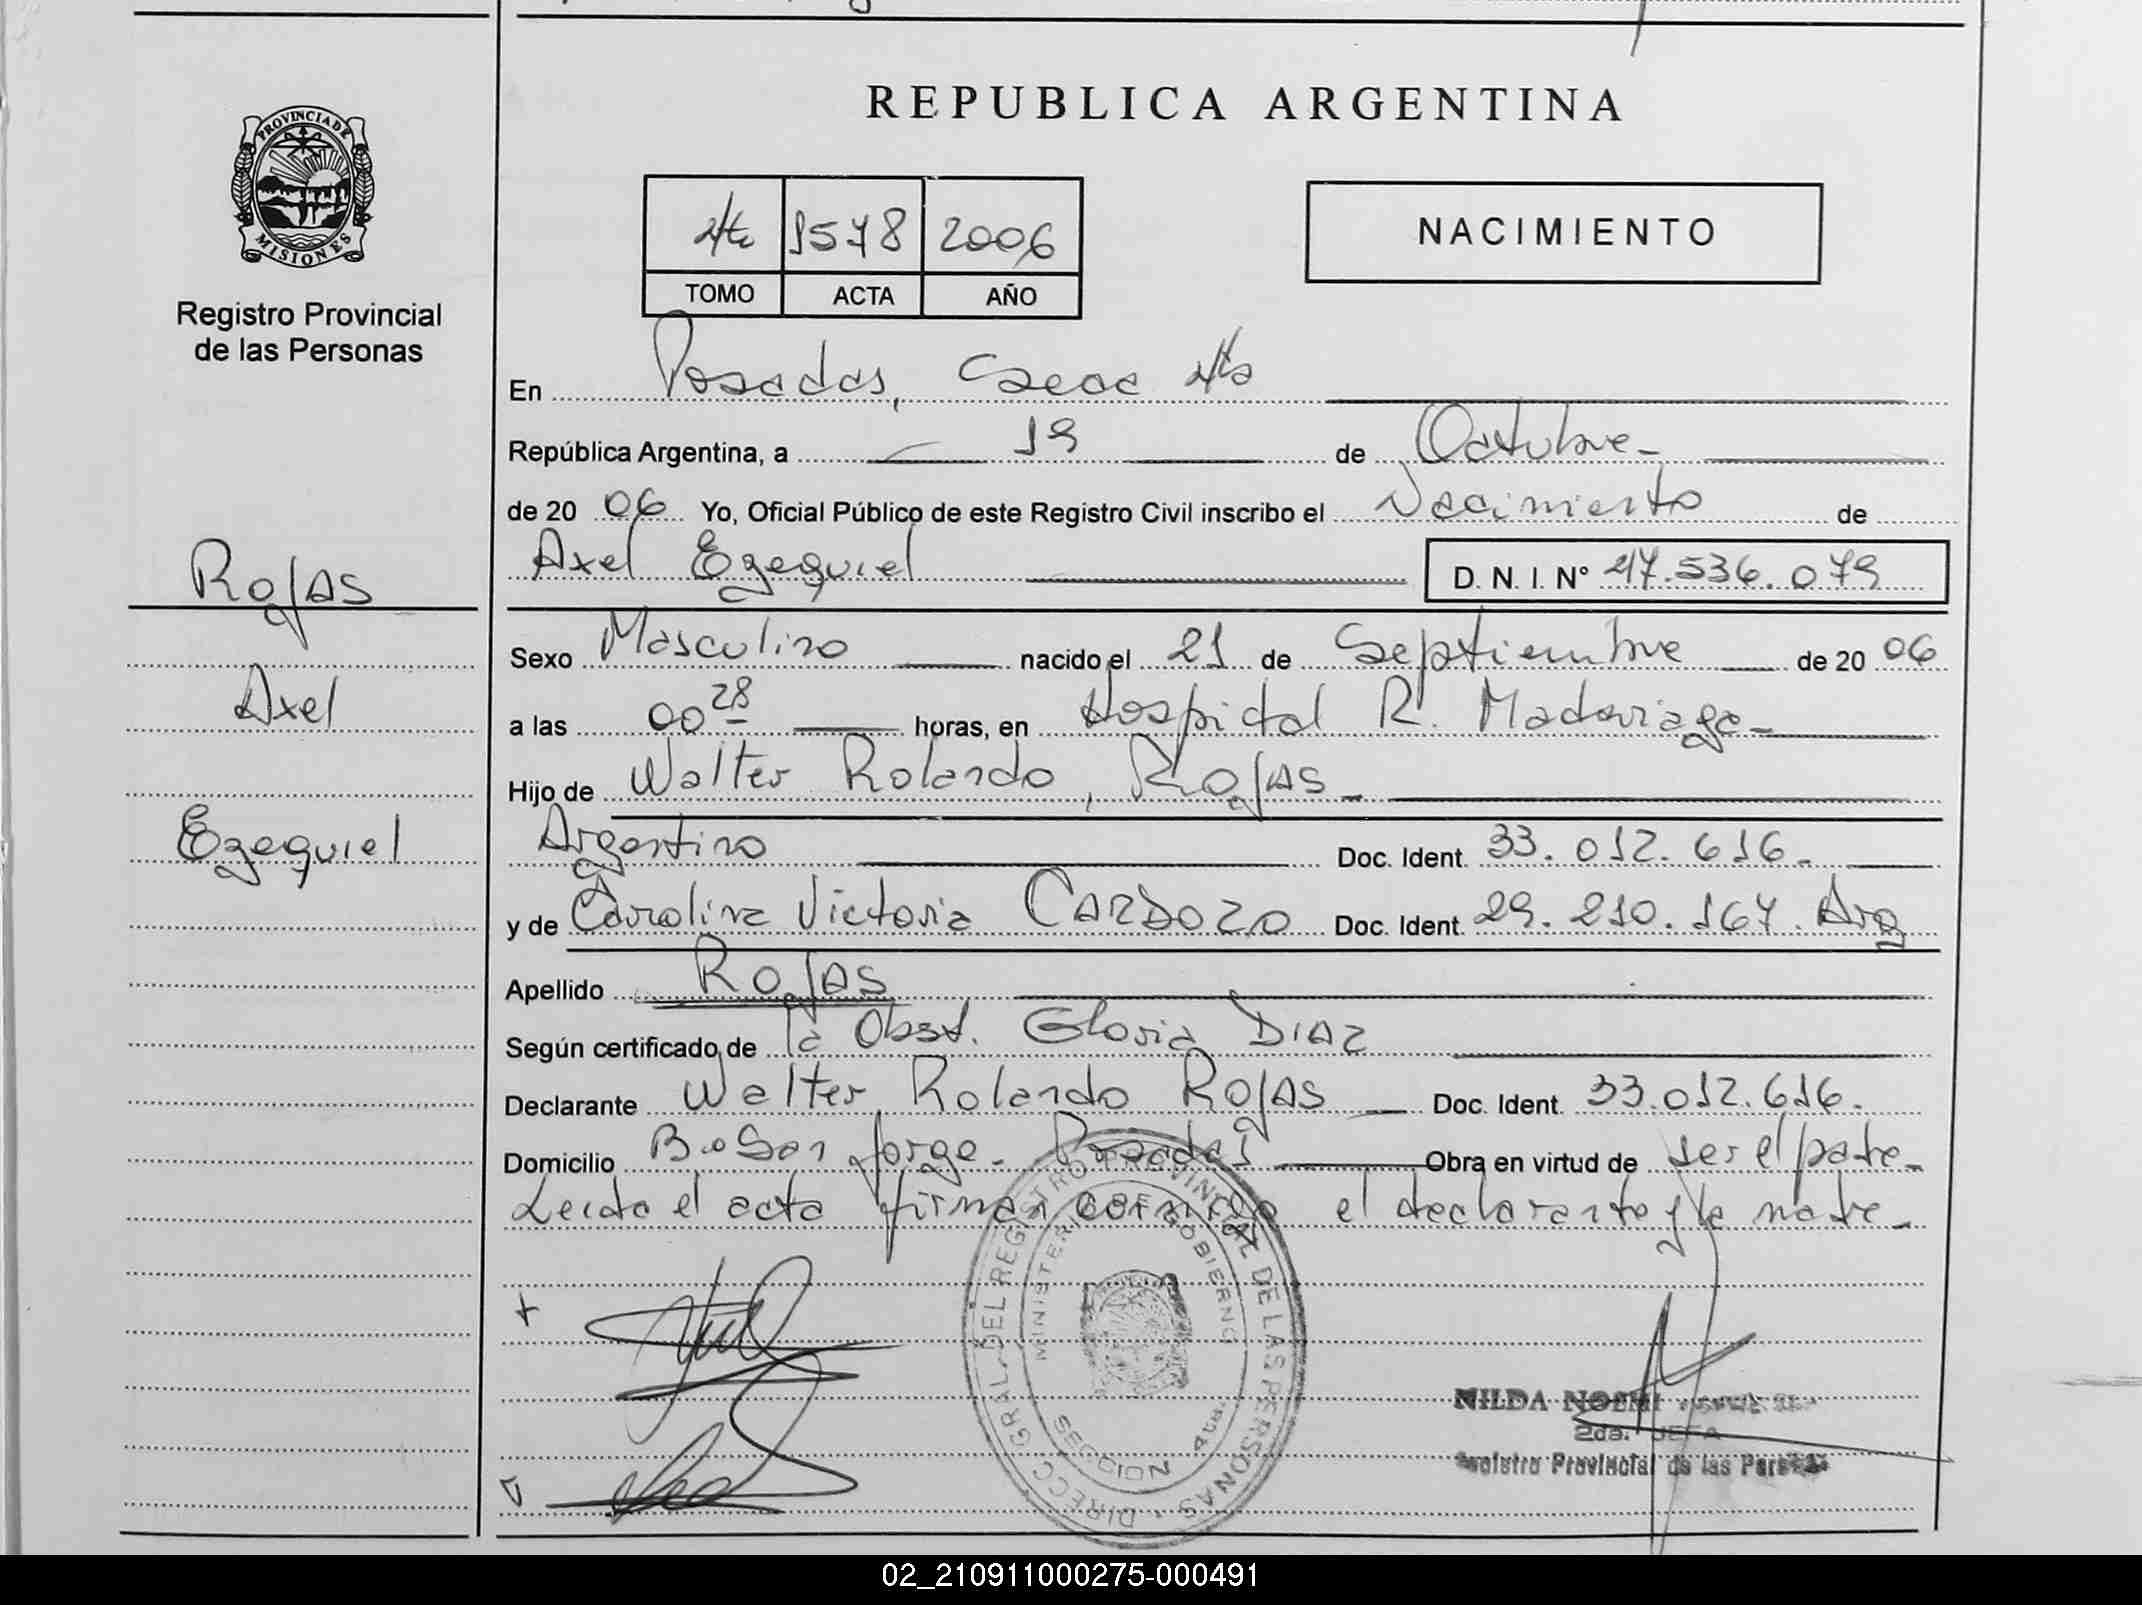 REPUBLICA ARGENTINA
PROVINCIA DE
MISIONES
Registro Provincial
de las Personas
4to 1578 2006
TOMO ACTA AÑO
NACIMIENTO
En Posadas, 4ta
República Argentina, a 19 de Octubre
de 20 06 Yo, Oficial Público de este Registro Civil inscribo el Nacimiento de
Axel Ezequiel D. N. I. N° 47.536.079
Rojas
Axel
Ezequiel
Sexo Masculino nacido el 21 de Septiembre de 20 06
a las 00 28 horas, en Hospital R. Madariaga
Hijo de Walter Rolando, Rojas
Argentino Doc. Ident. 33.012.616.
y de Carolina Victoria CARDOZO Doc. Ident. 29.210.167. Arg
Apellido Rojas
Según certificado de la Obst. Gloria DIAZ
Declarante Walter Rolando Rojas Doc. Ident. 33.012.616.
Domicilio Bo San Jorge - Posadas Obra en virtud de ser el padre
Leida el acta firman conmigo el declarante y la madre
DIRECC. GRAL. DEL REGISTRO PROVINCIAL DE LAS PERSONAS
MINISTERIO DE GOBIERNO
NILDA NOEMI
2da. JEFA
Registro Provincial de las Personas
02_210911000275-000491